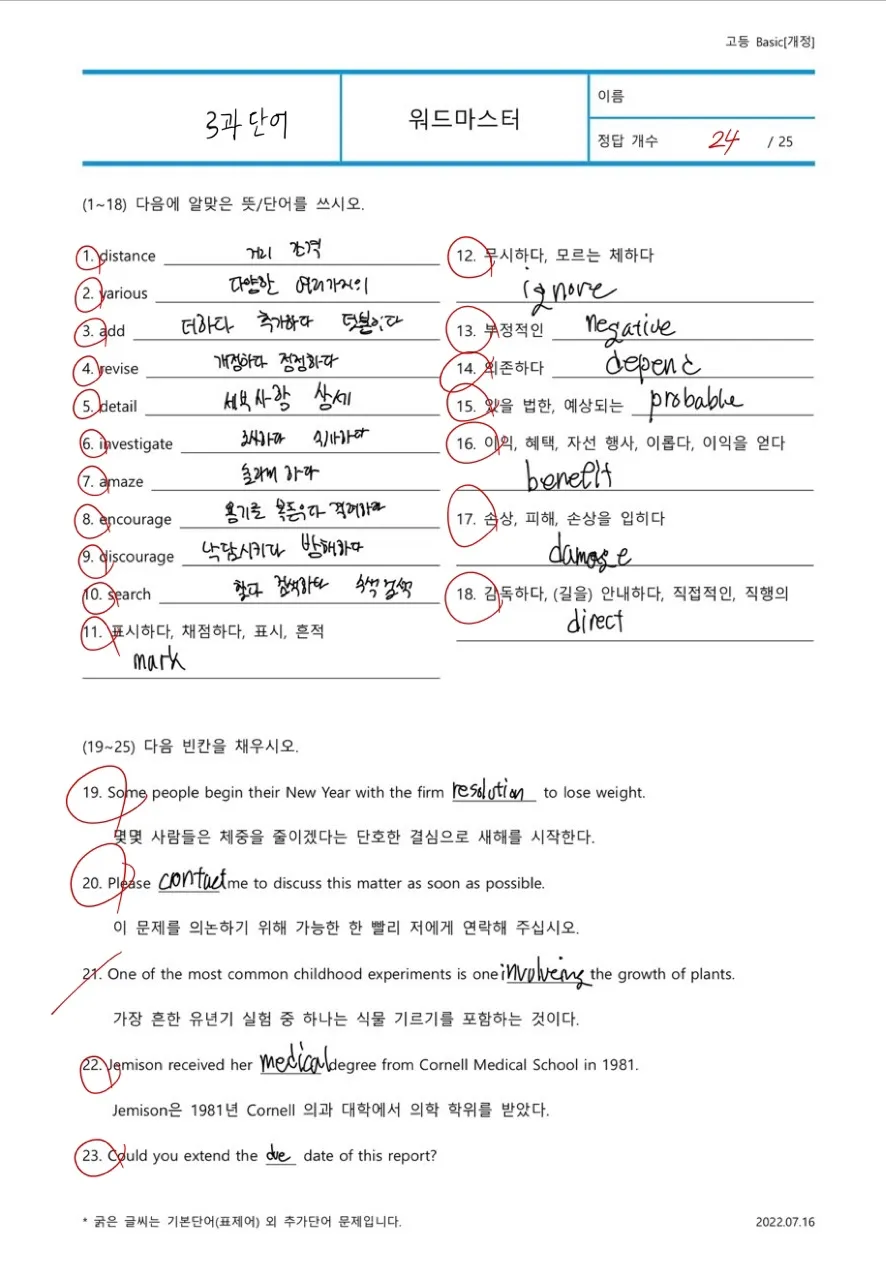 고등 Basic[개정]
3과 단어
워드마스터
이름
정답 개수 24 / 25
(1~18) 다음에 알맞은 뜻/단어를 쓰시오.
1. distance 거리 간격
2. various 다양한 여러가지의
3. add 더하다 추가하다 덧붙이다
4. revise 개정하다 정정하다
5. detail 세부사항 상세
6. investigate 조사하다
7. amaze 놀라게 하다
8. encourage 용기를 북돋우다 격려하다
9. discourage 낙담시키다 방해하다
10. search 찾다 검색하다 수색 검색
11. 표시하다, 채점하다, 표시, 흔적
mark
12. 무시하다, 모르는 체하다
ignore
13. 부정적인 negative
14. 의존하다 depend
15. 있을 법한, 예상되는 probable
16. 이익, 혜택, 자선 행사, 이롭다, 이익을 얻다
benefit
17. 손상, 피해, 손상을 입히다
damage
18. 감독하다, (길을) 안내하다, 직접적인, 직행의
direct
(19~25) 다음 빈칸을 채우시오.
19. Some people begin their New Year with the firm resolution to lose weight.
몇몇 사람들은 체중을 줄이겠다는 단호한 결심으로 새해를 시작한다.
20. Please contact me to discuss this matter as soon as possible.
이 문제를 의논하기 위해 가능한 한 빨리 저에게 연락해 주십시오.
21. One of the most common childhood experiments is one involveing the growth of plants.
가장 흔한 유년기 실험 중 하나는 식물 기르기를 포함하는 것이다.
22. Jemison received her medical degree from Cornell Medical School in 1981.
Jemison은 1981년 Cornell 의과 대학에서 의학 학위를 받았다.
23. Could you extend the due date of this report?
* 굵은 글씨는 기본단어(표제어) 외 추가단어 문제입니다.
2022.07.16